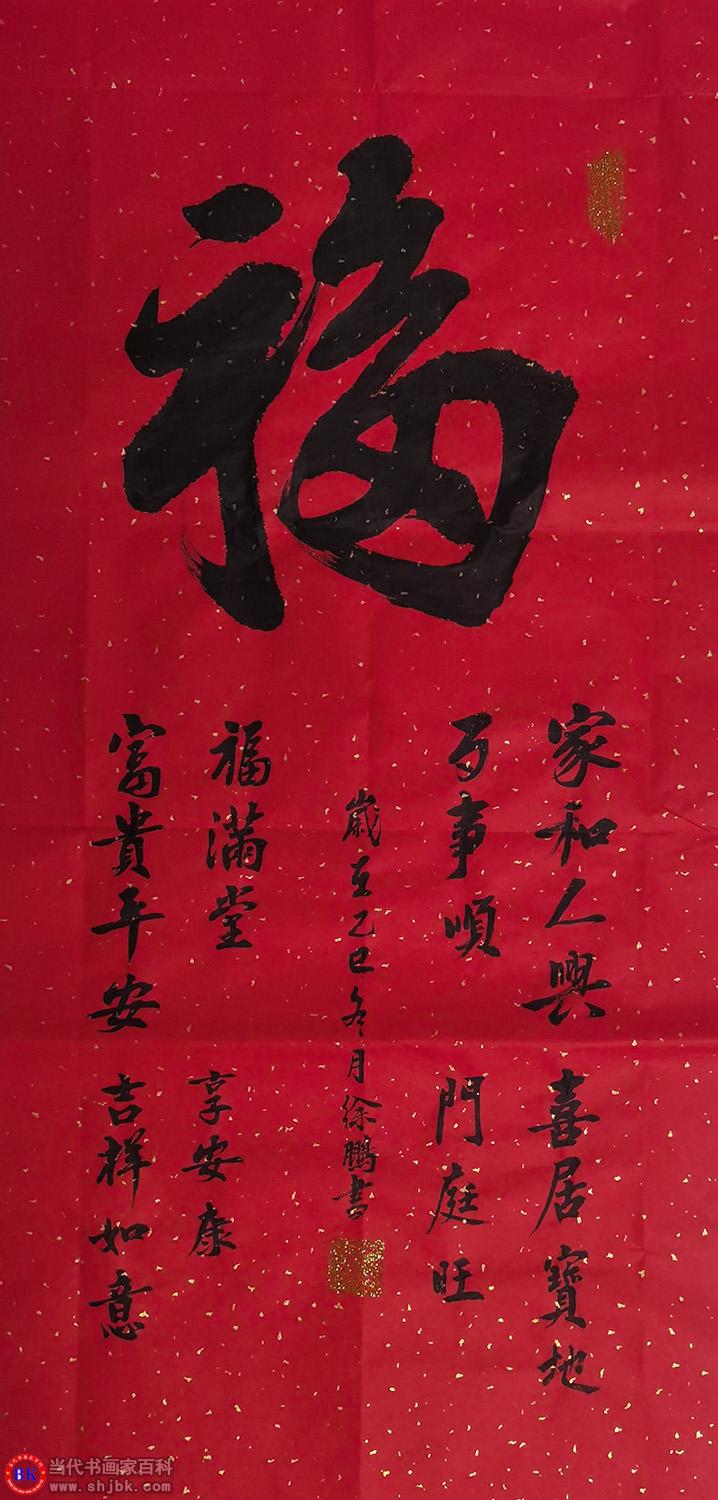 福
家和人興 喜居寶地
万事順 門庭旺
歲在乙巳冬月徐鵬書
福滿堂 享安康
富貴平安 吉祥如意
BK 当代书画家百科
www.shjbk.com